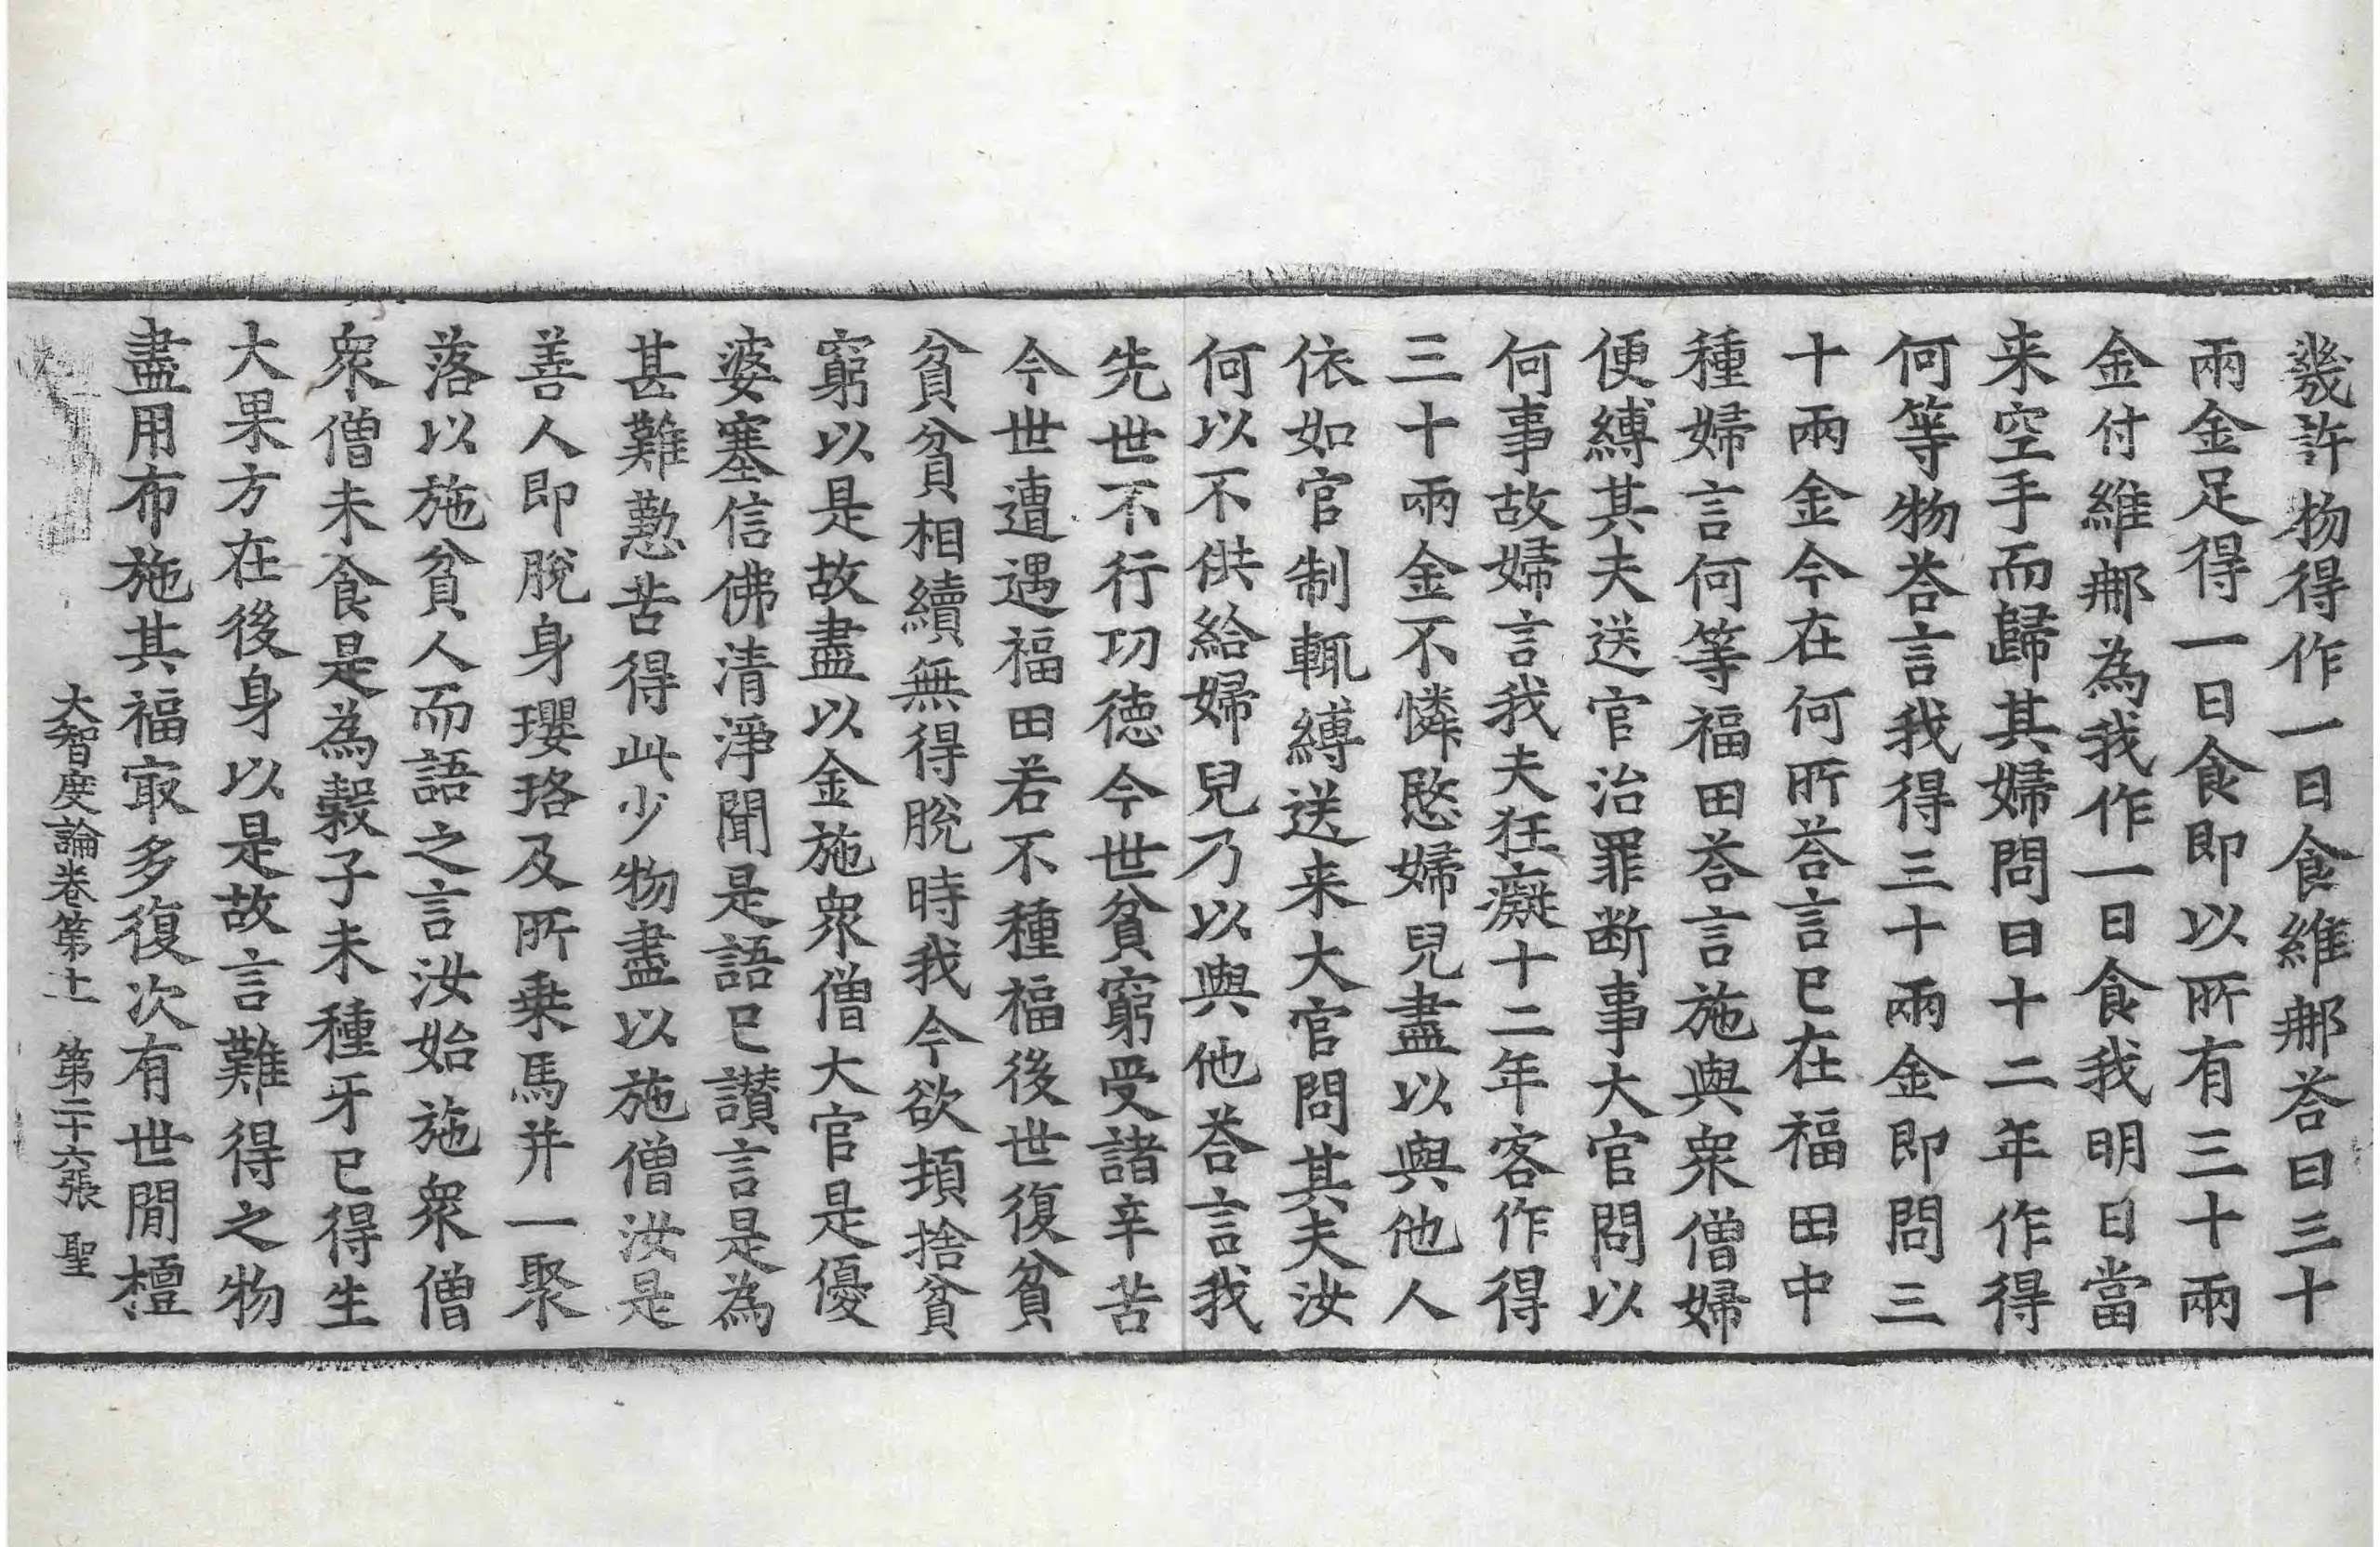 幾許物得作一日食維那荅曰三十
兩金足得一日食即以所有三十兩
金付維那為我作一日食我明日當
来空手而歸其婦問曰十二年作得
何等物荅言我得三十兩金即問三
十兩金今在何所荅言已在福田中
種婦言何等福田荅言施與衆僧婦
便縛其夫送官治罪断事大官問以
何事故婦言我夫狂癡十二年客作得
三十兩金不憐愍婦兒盡以與他人
依如官制輒縛送来大官問其夫汝
何以不供給婦兒乃以與他荅言我
先世不行功徳今世貧窮受諸辛苦
今世遭遇福田若不種福後世復貧
貧貧相續無得脫時我今欲頓捨貧
窮以是故盡以金施衆僧大官是優
婆塞信佛清淨聞是語已讃言是為
甚難懃苦得此少物盡以施僧汝是
善人即脫身瓔珞及所乗馬并一聚
落以施貧人而語之言汝始施衆僧
衆僧未食是為穀子未種牙已得生
大果方在後身以是故言難得之物
盡用布施其福㝡多復次有世閒檀
大智度論卷第十一 第二十六張 聖